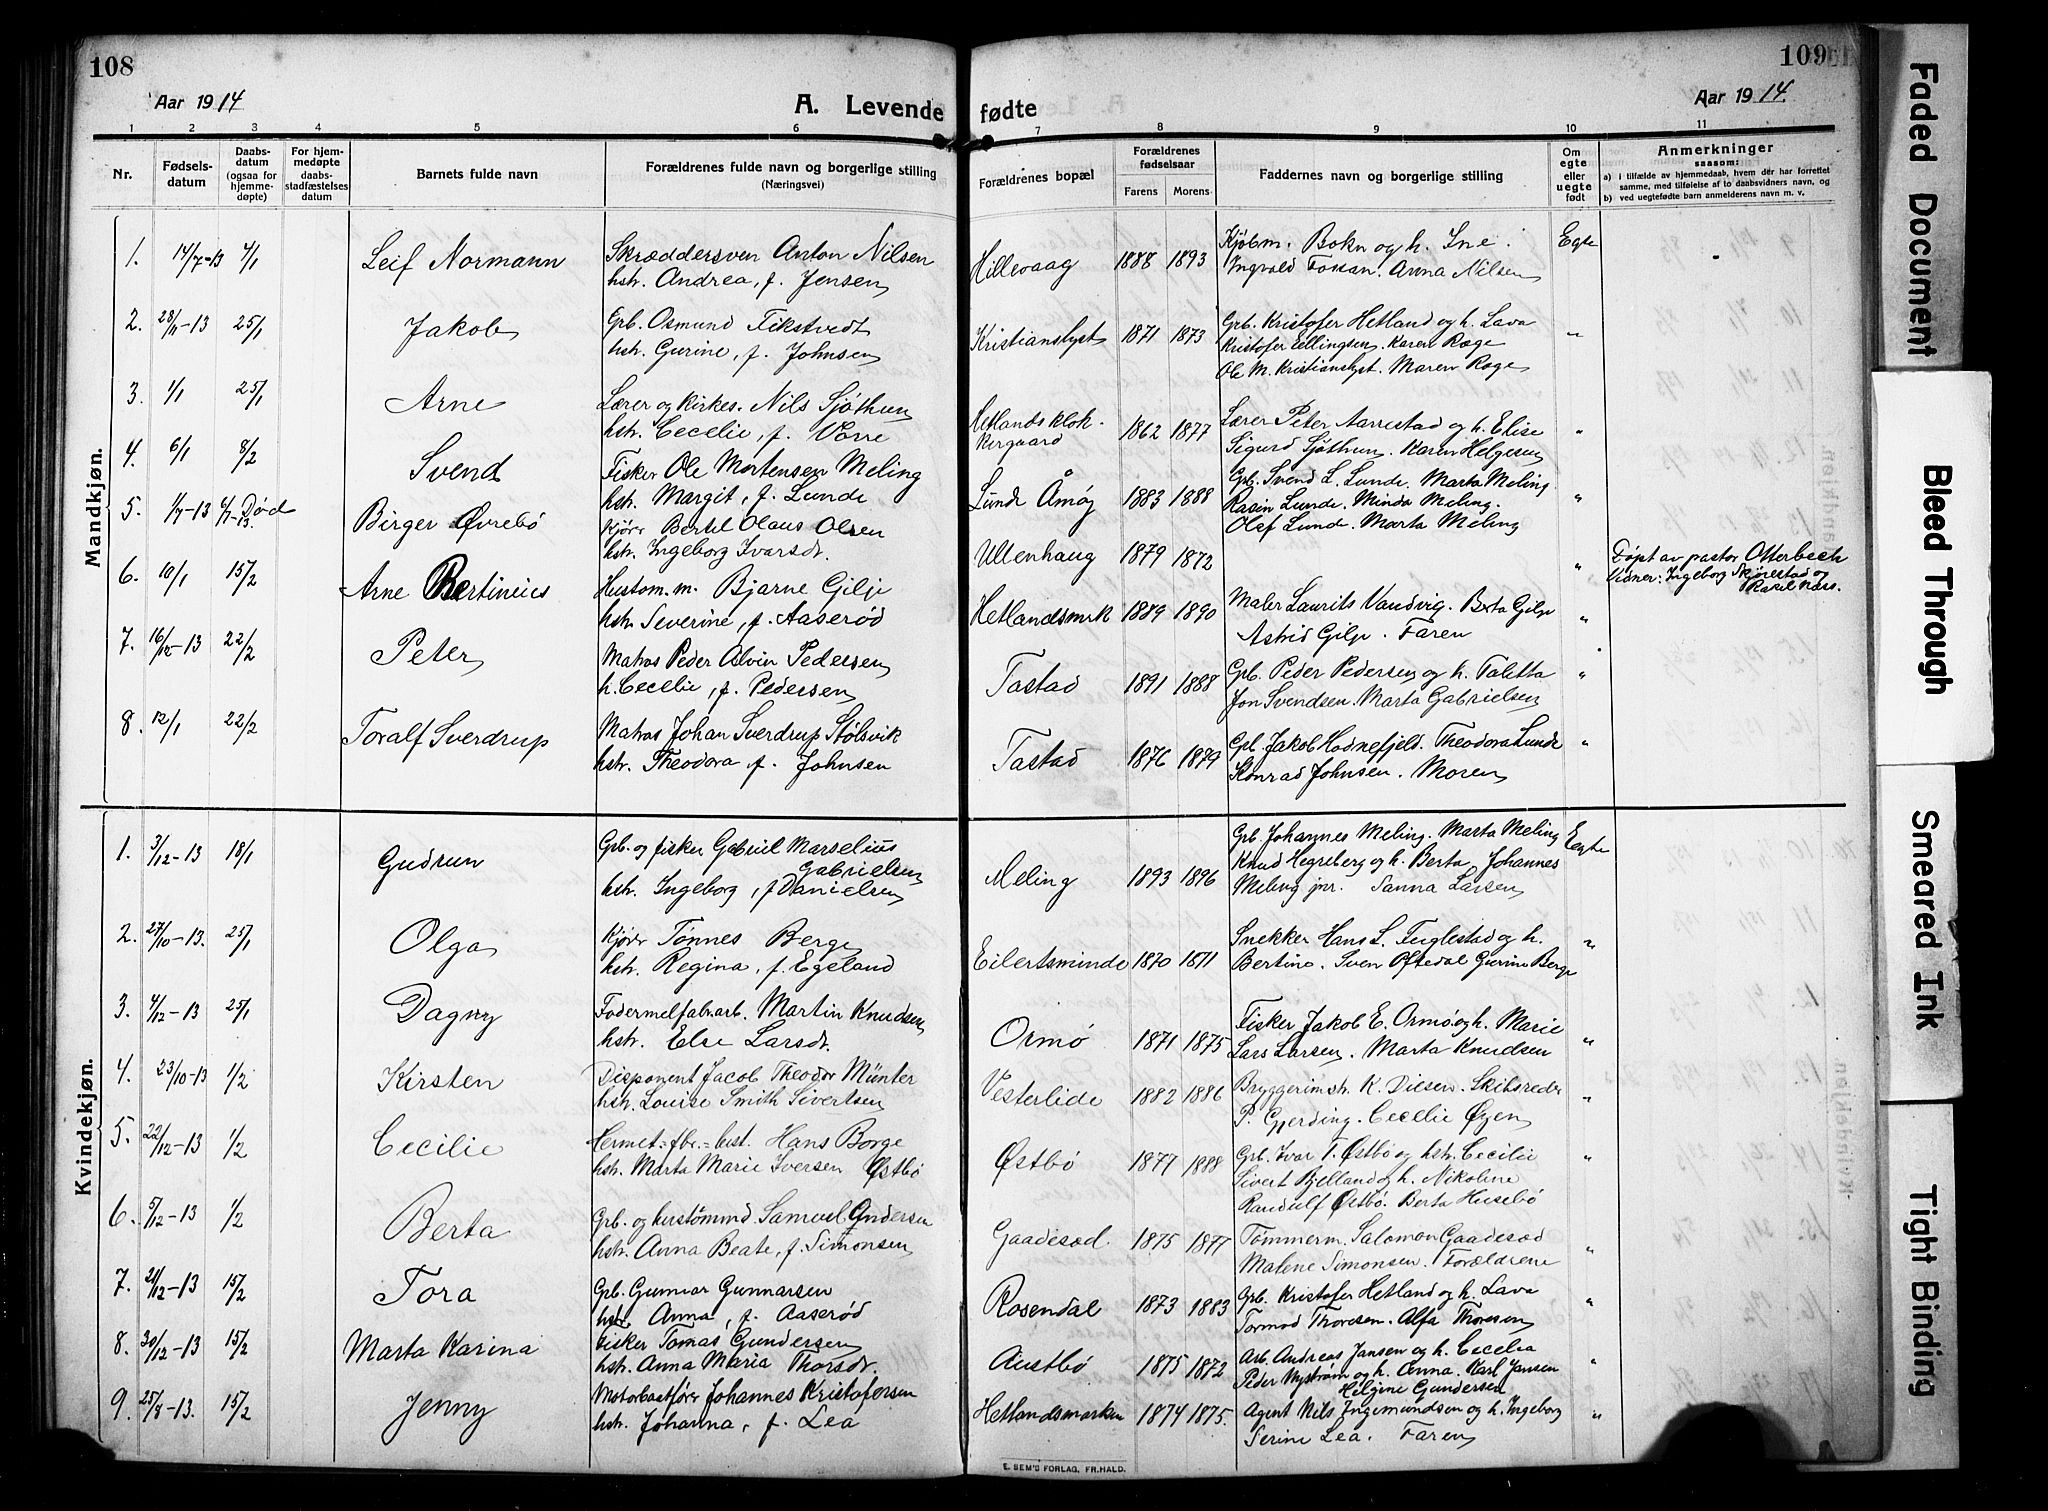 108
Aar 1914
A. Levende
1 2 3 4 5 6
Nr.
Fødsels-
datum
Daabs-
datum
(ogsaa for
hjemme-
døpte)
For hjem-
medøpte
daabs-
stadfæstelses
datum
Barnets fulde navn
Forældrenes fulde navn og borgerlige stilling
(Næringsvei)
Mandkjøn.
1. 14/7-13 4/1 Leif Normann Skræddersven Anton Nilsen
hstr. Andrea, f. Jensen
2. 28/11-13 25/1 Jakob Grb. Osmund Tikstvedt
hstr. Gurine, f. Johnsen
3. 1/1 25/1 Arne Lærer og kirkes. Nils Sjøthun
hstr. Cecelie, f. Vorre
4. 6/1 8/2 Svend Fisker Ole Mortensen Meling
hstr. Margit, f. Lunde
5. 1/7-13 6/7-13. Død Birger Øvrebø Kjører Bertel Olaus Olsen
hstr. Ingeborg Ivarsdr.
6. 10/1 15/2 Arne Bertineius Hustom.m. Bjarne Gilje
hstr. Severine, f. Aaserød
7. 16/12-13 22/2 Peter Matros Peder Alvin Pedersen
h. Cecelie, f. Pedersen
8. 12/1 22/2 Toralf Sverdrup Matros Johan Sverdrup Stølsvik
hstr. Theodora, f. Johnsen
Kvindekjøn.
1. 3/12-13 18/1 Gudrun Grb. og fisker Gabriel Marselius
Gabrielsen
hstr. Ingeborg, f. Danielsen
2. 27/10-13. 25/1 Olga Kjører Tønnes Berge
hstr. Regina, f. Egeland
3. 4/12-13 25/1 Dagny Fodermelfabr.arb. Martin Knudsen
hstr. Else Larsdr.
4. 23/10-13 1/2 Kirsten Disponent Jacob Theodor Münter
hstr. Louise Smith Sivertsen
5. 22/12-13 1/2 Cecilie Hermet.=fbr.=best. Hans Borge
hstr. Marta Marie Iversen Østbø
6. 5/12-13 1/2 Berta Grb. og hustømmd Samuel Andersen
hstr. Anna Beate, f. Simonsen
7. 21/12-13 15/2 Tora Grb. Gunnar Gunnarsen
hstr. Anna, f. Aaserød
8. 30/12-13 15/2 Marta Karina Fisker Tomas Gundersen
hstr. Anna Maria Thorsdr.
9. 25/8-13. 15/2 Jenny Motorbaatfører Johannes Kristofersen
hstr. Johanna, f. Lea
109
Aar 1914.
fødte
7 8 9 10 11
Forældrenes bopæl
Forældrenes
fødselsaar
Farens Morens
Faddernes navn og borgerlige stilling
Om
egte
eller
uegte
født
Anmerkninger
saasom:
a) i tilfælde av hjemmedaab, hvem dér har forrettet
samme, med tilføielse af to daabsvidners navn, og
b) ved uegtefødte barn anmelderens navn m. v.
Hillevaag 1888 1893 Kjøbm. Bokn og h. Ine. Egte
Ingvald Fossan. Anna Nilsen
Kristianslyst 1871 1873 Grb. Kristofer Hetland og h. Lava "
Kristofer Ellingsen. Karen Roge
Ole M. Kristianslyst. Maren Roge
Hetlands klok-
kergaard 1862 1877 Lærer Peter Aarrestad og h. Elise "
Sigurd Sjøthun. Karen Helgesen
Lunde Åmøy 1883 1888 Grb. Svend L. Lunde. Marta Meling. "
Rasin Lunde. Minda Meling.
Olef Lunde. Marta Meling
Ullenhaug 1879 1872 " Døpt av pastor Otterbech
Vidner: Ingeborg Skjørestad og
Rakel Næss.
Hetlandsmrk 1889 1890 Maler Laurits Vandvig. Berta Gilje "
Astrid Gilje. Faren
Tastad 1891 1888 Grb. Peder Pedersen og h. Taletta "
Jon Svendsen. Marta Gabrielsen
Tastad 1876 1879 Grb. Jakob Hodnefjeld. Theodora Lunde "
Konrad Johnsen. Moren
Meling 1893 1896 Grb. Johannes Meling. Marta Meling Egte
Knud Hegreberg og h. Berta, Johannes
Meling jnr. Sanna Larsen
Eilertsminde 1870 1871 Snekker Hans L. Fuglestad og h. "
Bertine. Sven Oftedal Gurine Berge
Ormø 1871 1875 Fisker Jakob E. Ormø og h. Marie
Lars Larsen. Marta Knudsen "
Vesterlide 1882 1886 Bryggerimstr. K. Diesen. Skibsreder "
P. Gjerding. Cecelie Øyen
Østbø 1877 1888 Grb. Ivar T. Østbø og hstr. Cecilie "
Sivert Bjelland og h. Nikoline
Randulf Østbø. Berta Husebø
Gaadesød 1875 1877 Tømmerm. Salomon Gaadesød "
Malene Simonsen. Forældrene
Rosendal 1873 1883 Grb. Kristofer Hetland og h. Lava "
Tormod Thoresen. Alfa Thoresen
Austbø 1875 1872 Arb. Andreas Jansen og h. Cecelia "
Peder Nystrøm og h. Anna. Karl Jansen
Helgine Gundersen
Hetlandsmarken 1874 1875. Agent Nils Ingemundsen og h. Ingeborg "
Serine Lea. Faren
E. SEM'S FORLAG, FR.HALD.
Faded Document
Bleed Through
Smeared Ink
Tight Binding